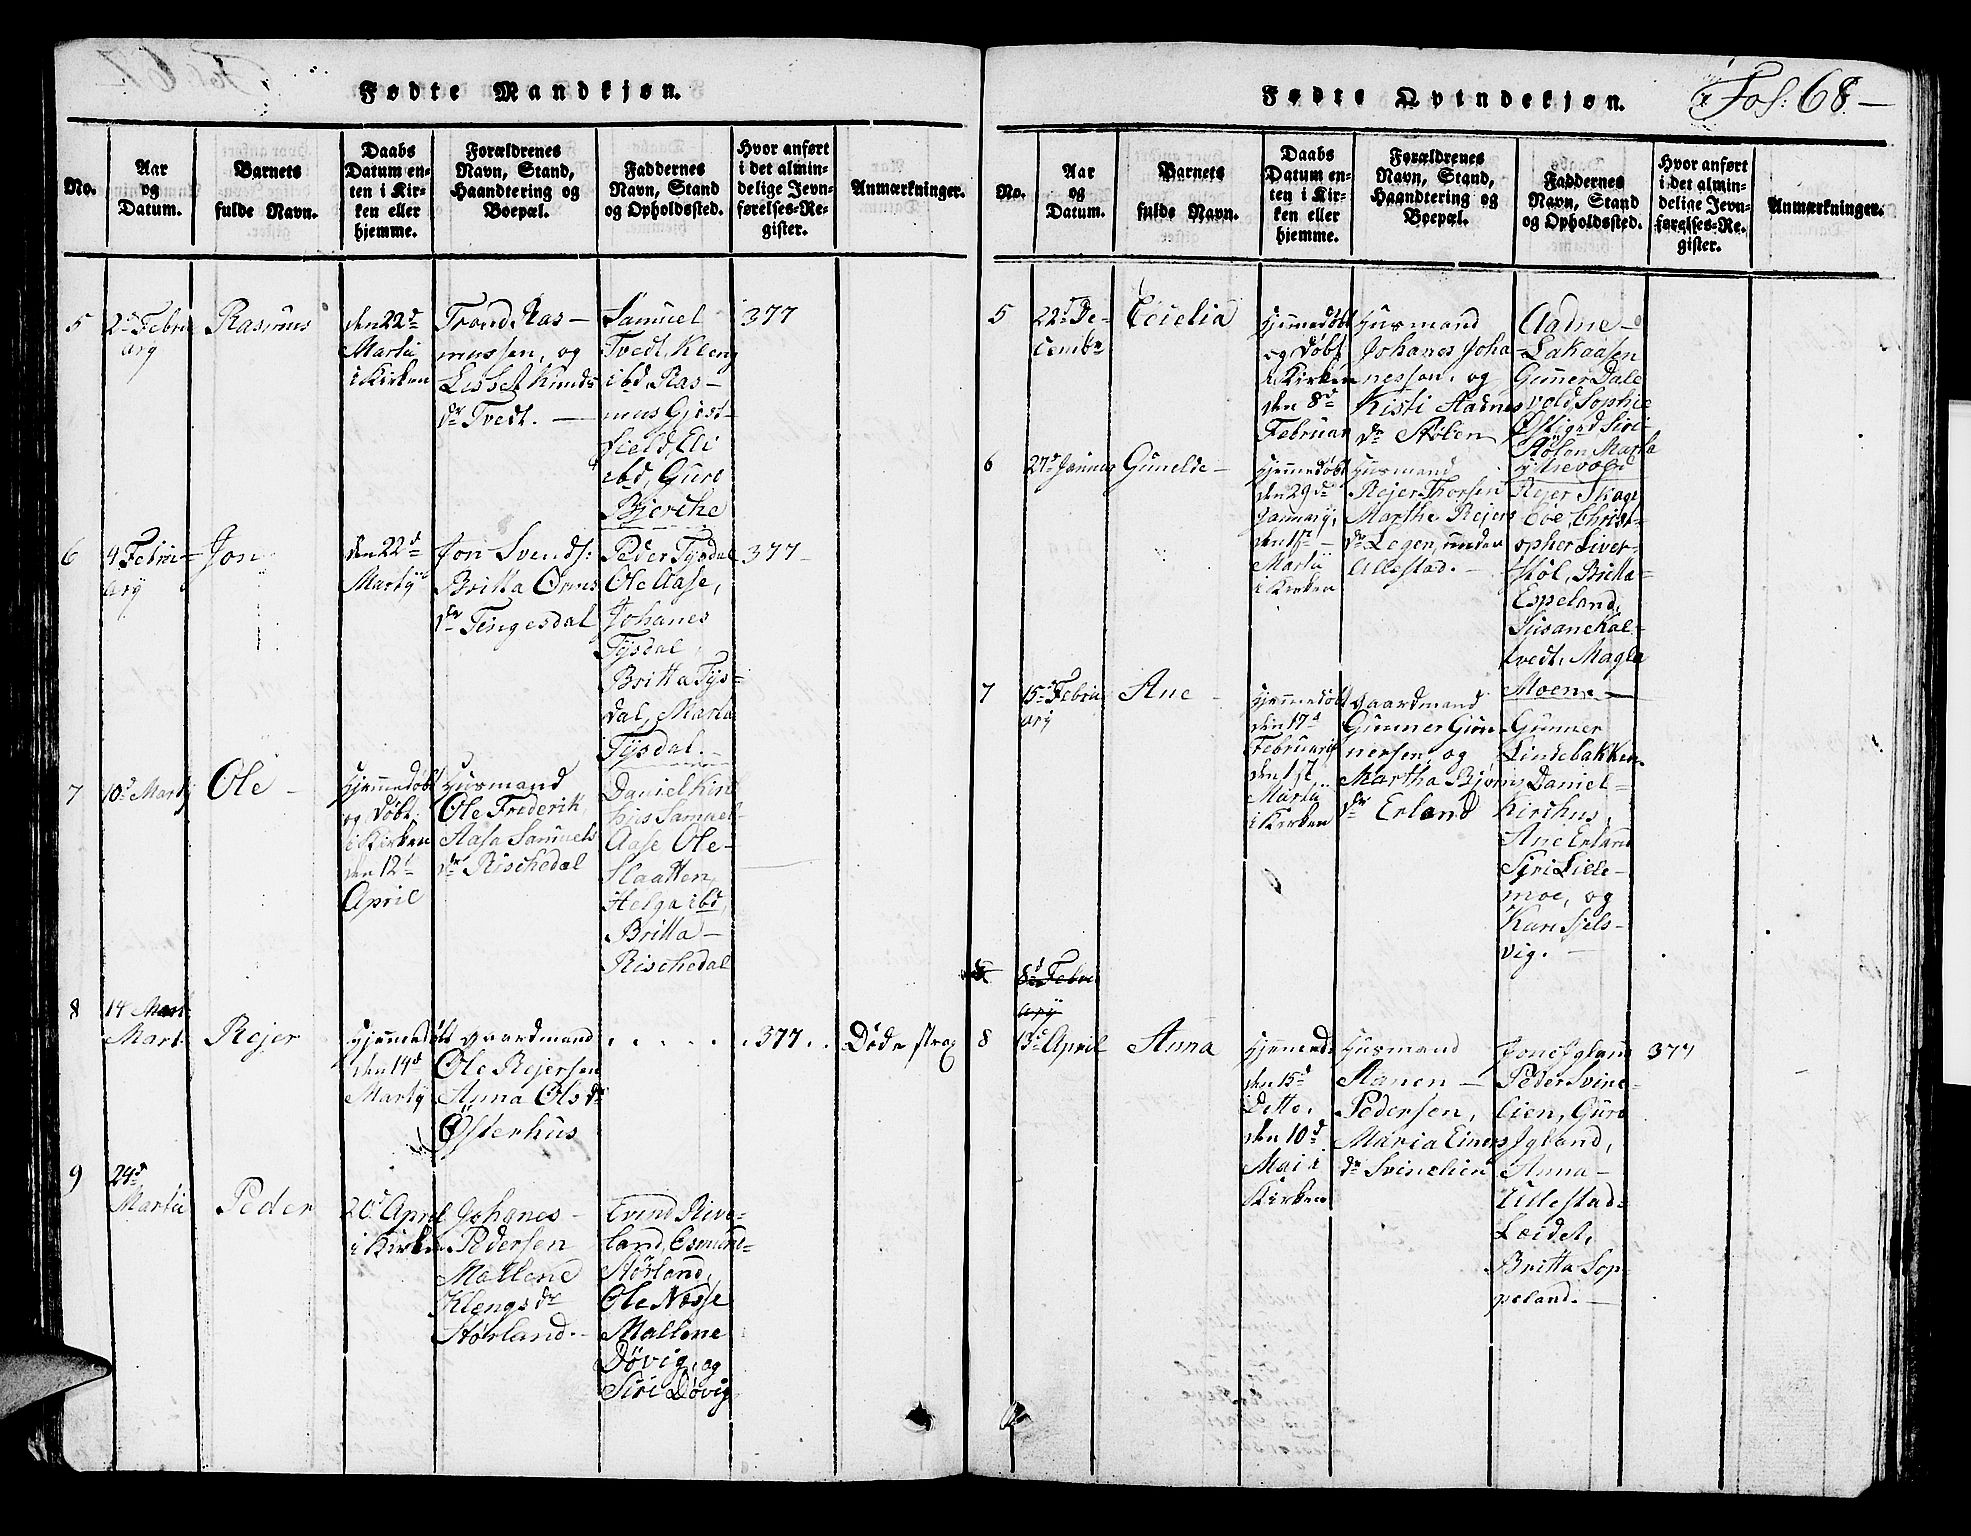 Fødte Mandkjøn.
No.
Aar
og
Datum.
Barnets
fulde Navn.
Daabs
Datum en-
ten i Kir-
ken eller
hjemme.
Forældrenes
Navn, Stand,
Haandtering og
Boepæl.
Faddernes
Navn, Stand
og Opholdssted.
Hvor anført
i det almin-
delige Jevn-
førelses-Re-
gister.
Anmærkninger.
5
2d Febru
ary
Rasmus
den 22d
Martii
i Kirken
Trond Ras-
mussen, og
Lisbet Knuds
dr Tvedt.
Samuel
Tvedt, Kleng
ibd, Ras-
mus Gjest-
field, Eli
ibd, Guro
Bjerche
377
6
4 Febru-
ary
Jon
den 22d
Martij
Jon Svends:
Britta Orms
dr Tengesdal
Peder Tysdal
Ole Aase,
Johanes
Tysdal,
Britta Tys-
dal, Marta
Tysdal.
377
7
10d Martij
Ole
Hjemmedøbt
og Døbt
i Kirken
den 12d
April
Husmand
Ole Friderik
Aasa Samuels
dr Rischedal
Daniel Kirk
hus Samuel
Aase Ole-
Slaatten,
Helga ibd,
Britta-
Rischedal
8
14 Mart
Mart.
Rejer
Hjemmedøbt
den 14d
Martij
gaardmand
Ole Rejersen
Anna Ols dr
Østerhus
377.
Døde strax
9
24d
Martii
Peder
20d April
i Kirken
Johanes-
Pedersen
Mallene
Klengs dr
Hørland.
Evind Rive-
land, Osmund
Hørland,
Ole Næsse
Mallene
Døvig, og
Siri Døvig
Fødte Qvindekjøn.
Fol: 68-
No.
Aar
og
Datum.
Barnets
fulde Navn.
Daabs
Datum en-
ten i Kir-
ken eller
hjemme.
Forældrenes
Navn, Stand,
Haandtering og
Boepæl.
Faddernes
Navn, Stand
og Opholdssted.
Hvor anført
i det almin-
delige Jevn-
førelses-Re-
gister.
Anmærkninger.
5
22d De-
cembr
Cicelia
Hjemmedøbt
og Døbt
i Kirken
den 8d
Februar
Husmand
Johanes Joha
nessøn, og
Kisti Aadnes
dr Støben
Aadne-
Lakaasen
Gunner Dale
vold, Sophie
Siri
Støben Marta
6
27d Januar
Gunelde-
Hjemmedøbt
den 29d
Januarij,
den 1st
Martii
i Kirken
Husmand
Rejer Thorsen
Marthe Rejers
dr Legen, under
Ullestad.
Rejer Skage
Christ-
opher Liver-
støl, Britta
Espeland,
Susane Kal-
tvedt, Magla
Moene-
7
15d Febru
ary
Ane
Hjemmedøbt
den 17d
Februarij
den 1st
Martii
i Kirken
gaardmand
Gunner Gun-
nersen, og
Martha Bjørns
dr Erland
Gunner
Lindebakken.
Daniel-
Kirchus,
Ane Erland
Siri Lille-
moe, og
Kari Sjels-
vig.
8d Febru
ary
8
13d April
Anna
Hjemmed.
den 15d
Detto.
den 10d
Mai i
Kirken
Husmand
Stanen-
Pedersen,
Maria Einers
dr Svinelien
Jone Igland
Peder Svine-
lien, Guro
Igland,
Anna-
Ullestad-
Leidet,
Britta Sop
peland.
377